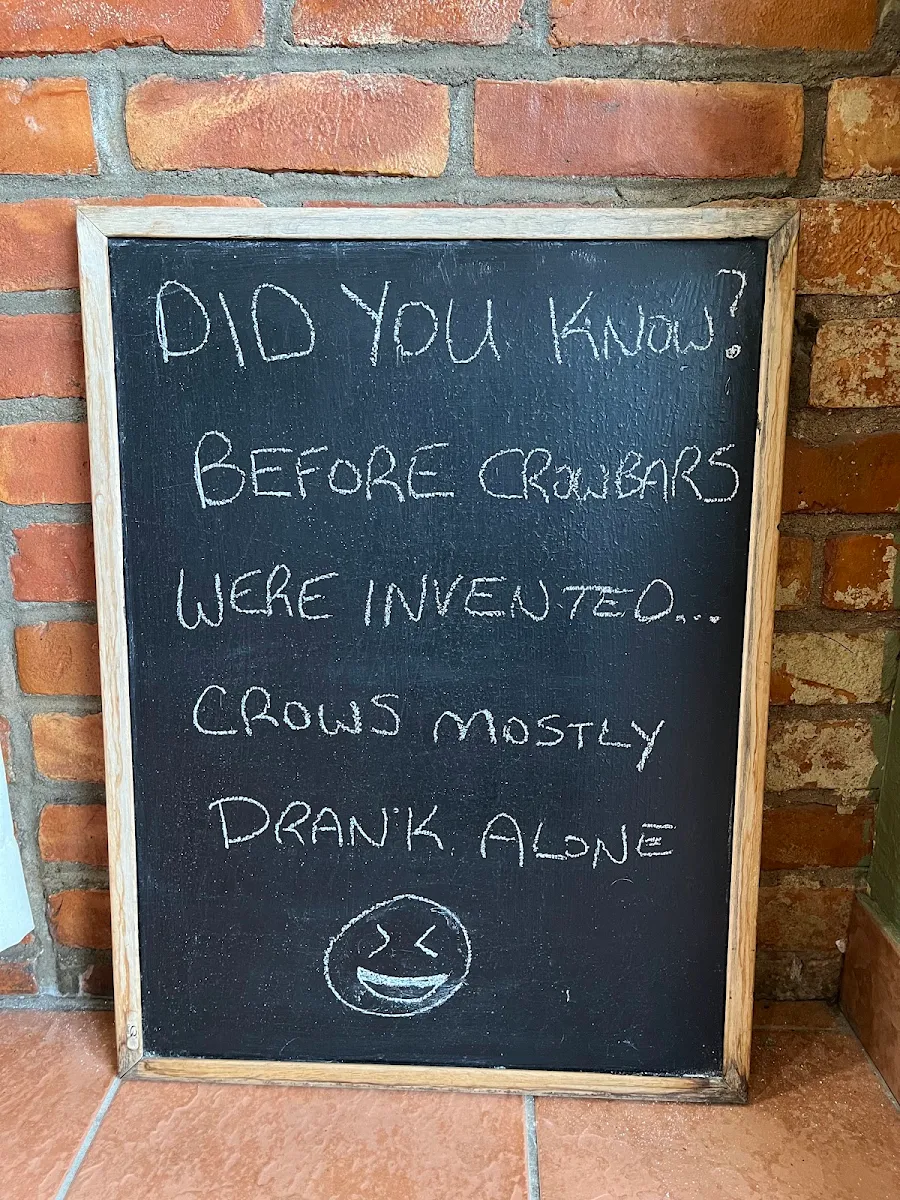 DID YOU KNOW?
BEFORE CROWBARS
WERE INVENTED...
CROWS MOSTLY
DRANK ALONE